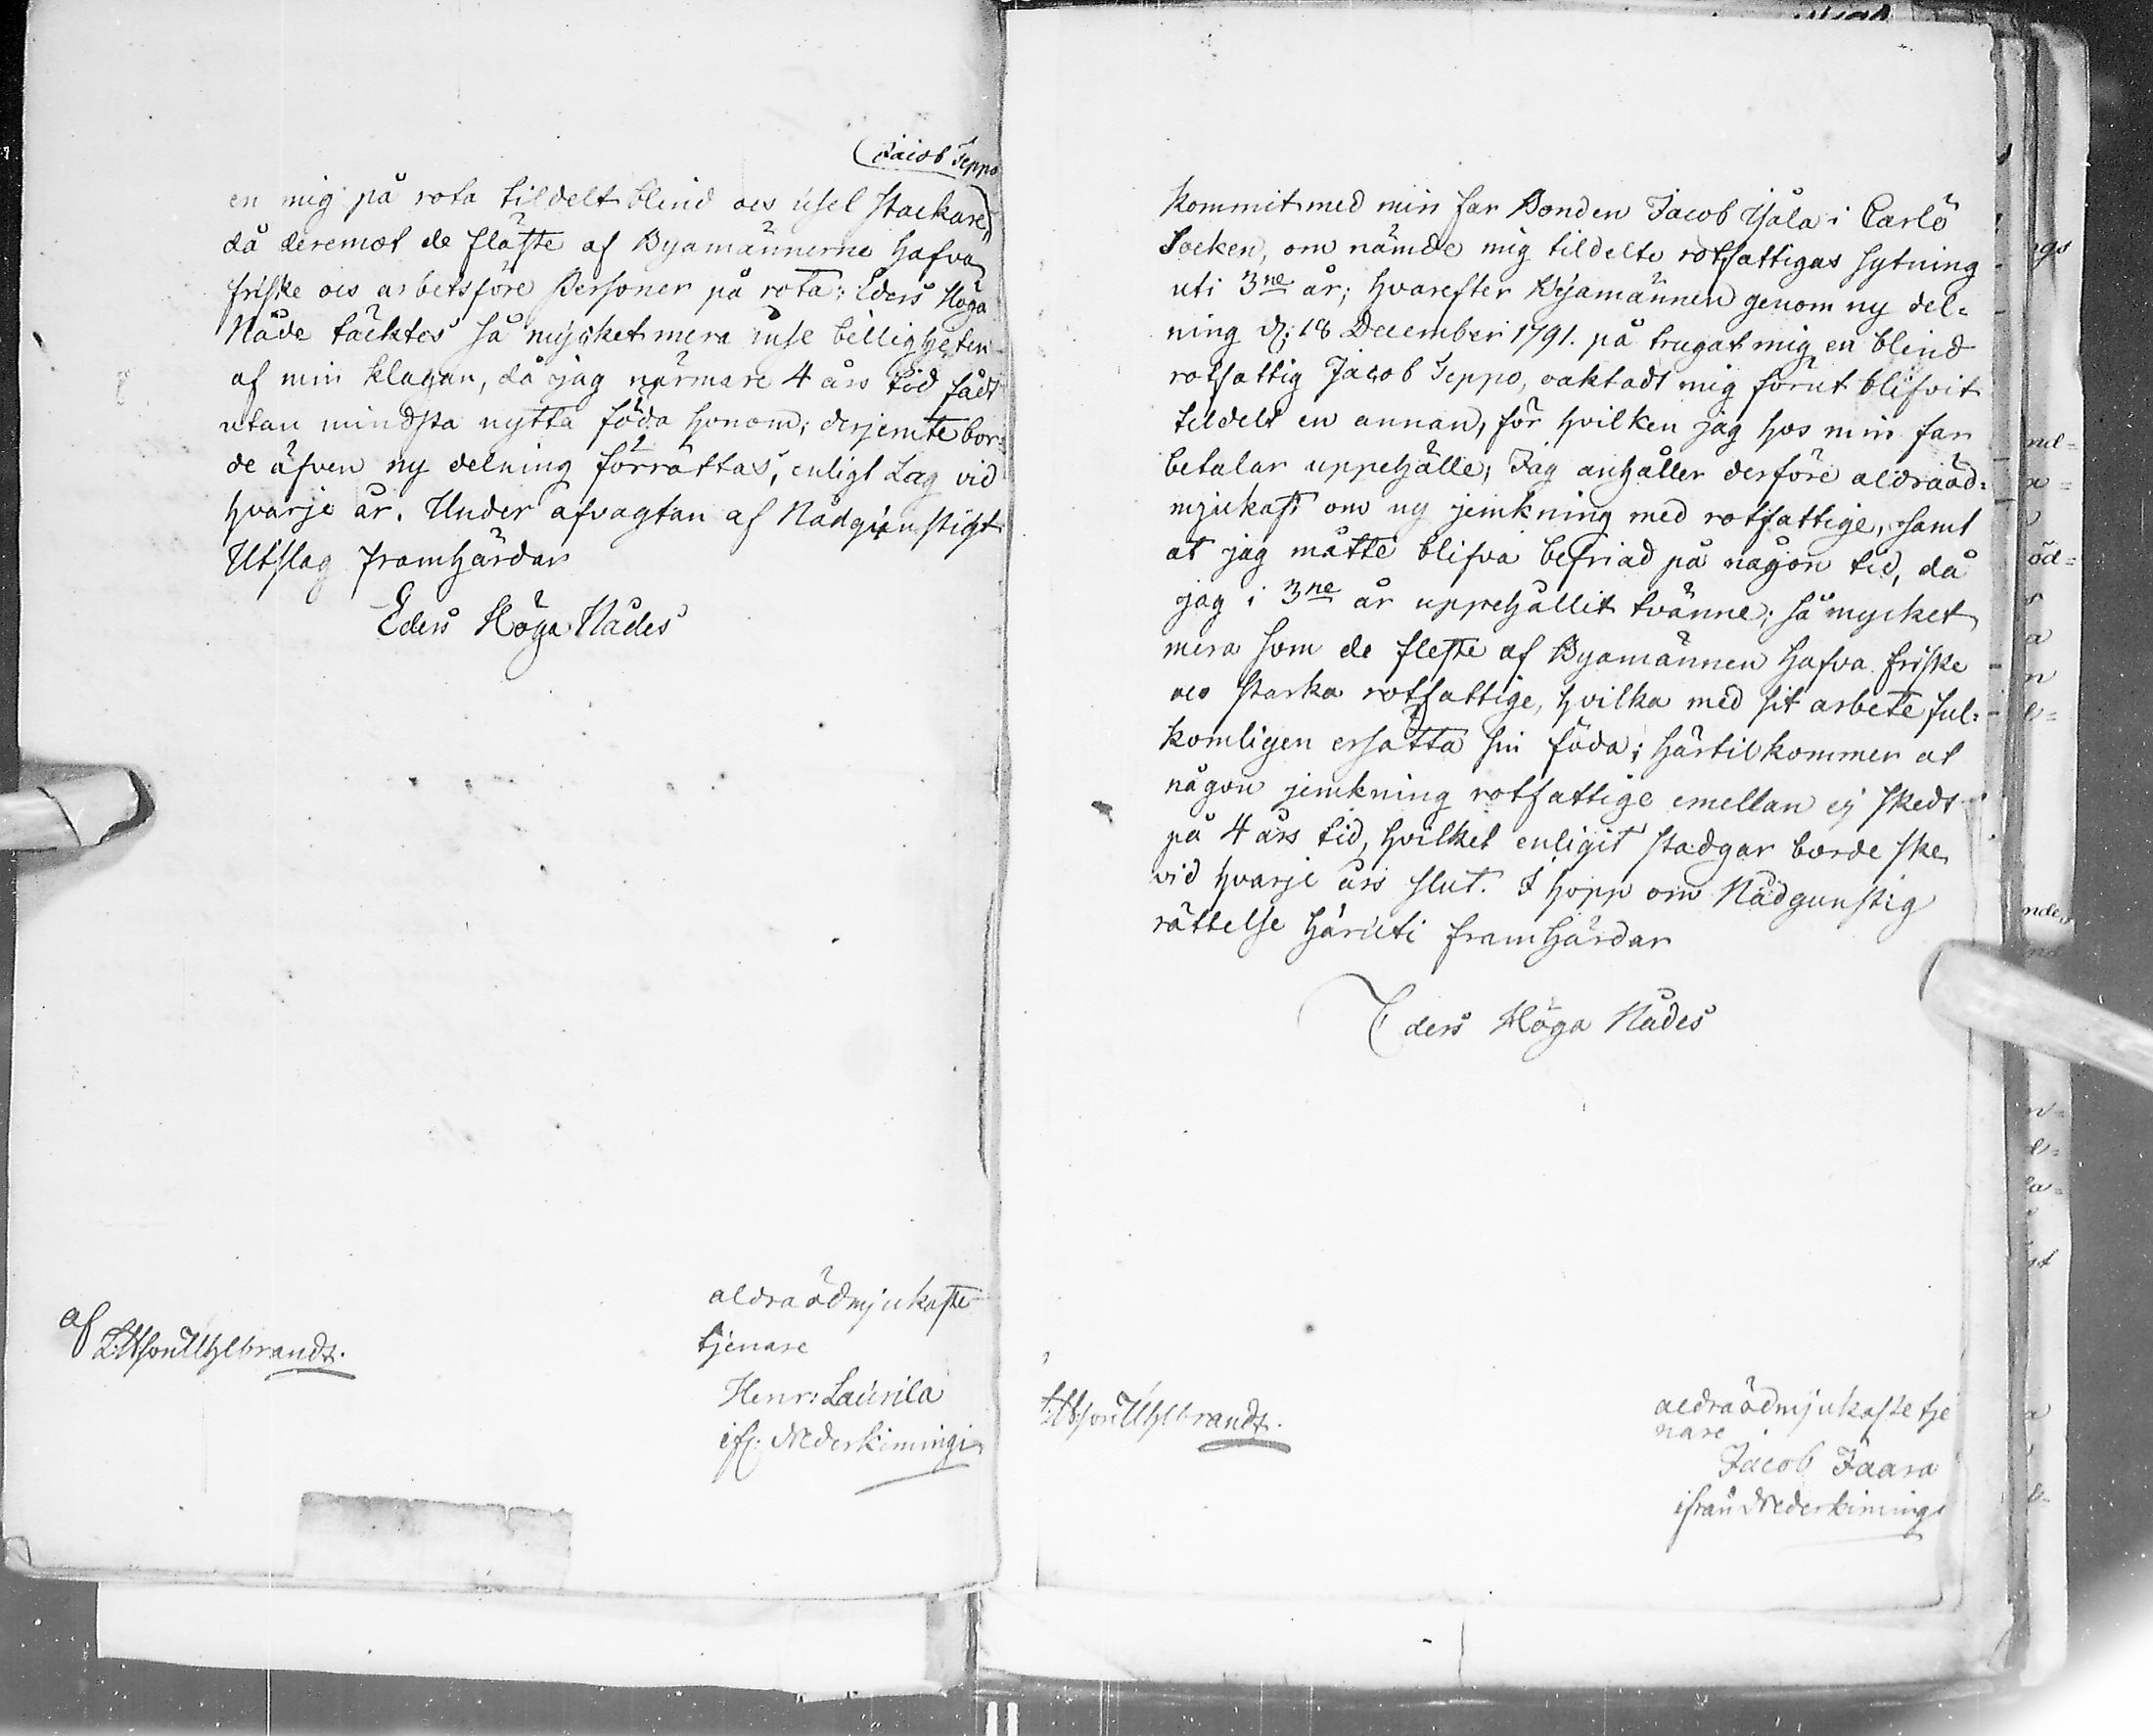 (Jacob Seppo
en mig på rota tildelt blind ocs usel stackare)
då deremot de fläste af Byamännerne hafva
friske ocs arbetsföre Personer på rota: Eders Höga
Nåde täcktes så mycket mera inse billigheten
af min klagan, då jag närmare 4 års tid fådt
utan mindsta nytta föda honom; derjemte bor=
de äfven ny delning förrättas, enligt Lag vid
hvarje år. Under afvagtan af Nådgunstigt
Utslag framhärdar
Eders Höga Nådes
aldraödmjukaste
tjenare
Henr: Laurila
ifr: Nederkimingi
af
Uhlbrandt.
kommit med min far Bonden Jacob Ijåla i Carlö
Socken, om nämde mig tildelte rotfattigas sytning
uti 3ne år; hvarefter Byamännen genom ny del=
ning d: 18 December 1791. på trugat mig en blind
rotfattig Jacob Seppo, oaktadt mig förut blifvit
tildelt en annan, för hvilken jag hos min far
betalar uppehälle; Jag anhåller derföre aldraöd=
mjukast om ny jemkning med rotfattige, samt
at jag måtte blifva befriad på någon tid, då
jag i 3ne år uppehållit tvänne; så mycket
mera som de fleste af Byamännen hafva friske
ocs starka rotfattige, hvilka med sit arbete ful=
komligen ersätta sin föda; härtil kommer at
någon jemkning rotfattige emellan ej skedt
på 4 års tid, hvilket enligit stadgar borde ske
vid hvarje års slut. I hopp om Nådgunstig
rättelse häruti framhärdar
Eders Höga Nådes
aldraödmjukaste tje
nare
Jacob Jaara
ifrån Nederkimingi
Uhlbrandt.